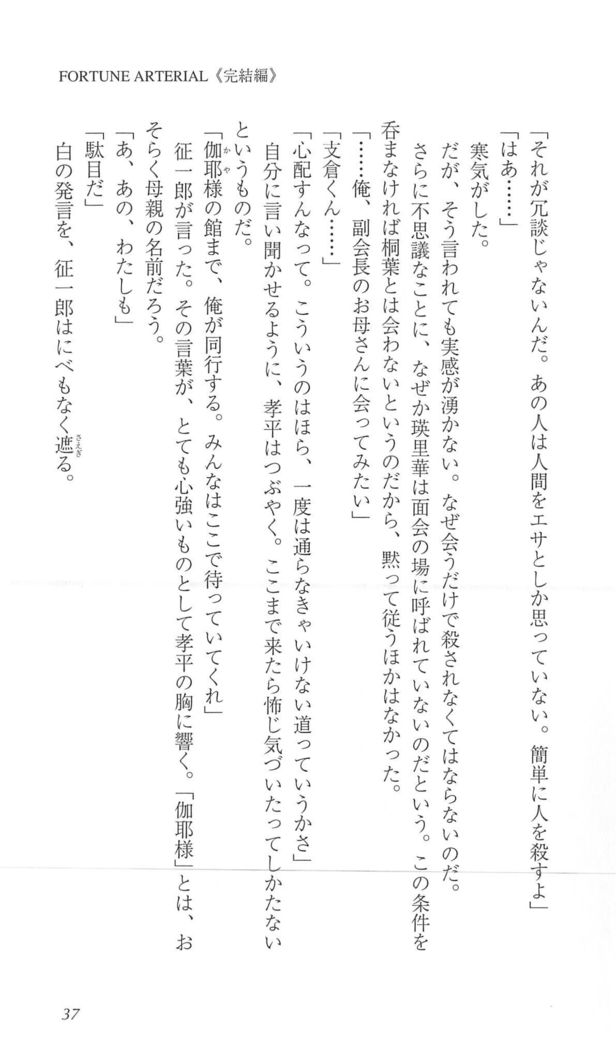 FORTUNE ARTERIAL《完結編》
「それが冗談じゃないんだ。あの人は人間をエサとしか思っていない。簡単に人を殺すよ」
「はあ……」
寒気がした。
だが、そう言われても実感が湧かない。なぜ会うだけで殺されなくてはならないのだ。
さらに不思議なことに、なぜか瑛里華は面会の場に呼ばれていないのだという。この条件を
呑まなければ桐葉とは会わないというのだから、黙って従うほかはなかった。
「……俺、副会長のお母さんに会ってみたい」
「支倉くん……」
「心配すんなって。こういうのはほら、一度は通らなきゃいけない道っていうかさ」
自分に言い聞かせるように、孝平はつぶやく。ここまで来たら怖じ気づいたってしかたない
というものだ。
「伽耶様の館まで、俺が同行する。みんなはここで待っていてくれ」
征一郎が言った。その言葉が、とても心強いものとして孝平の胸に響く。「伽耶様」とは、お
そらく母親の名前だろう。
「あ、あの、わたしも」
「駄目だ」
白の発言を、征一郎はにべもなく遮る。
37